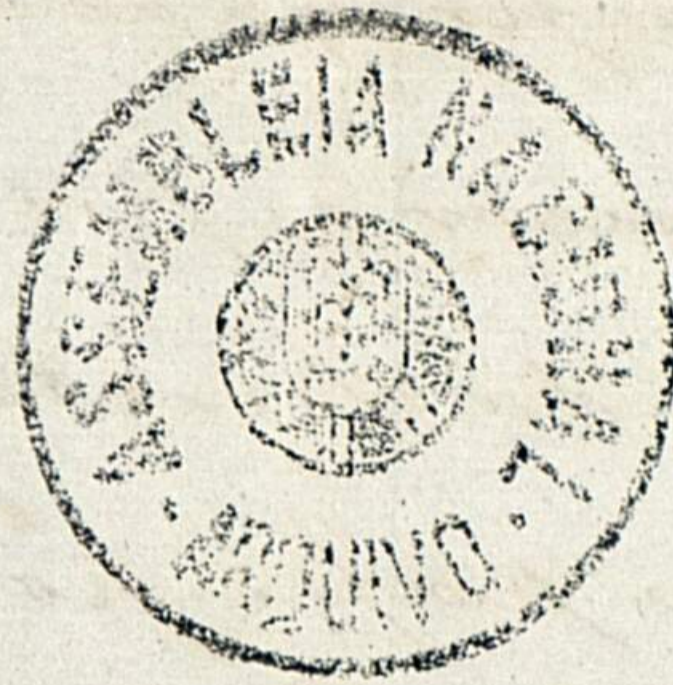 ASSEMBLEIA NACIONAL
ARQUIVO